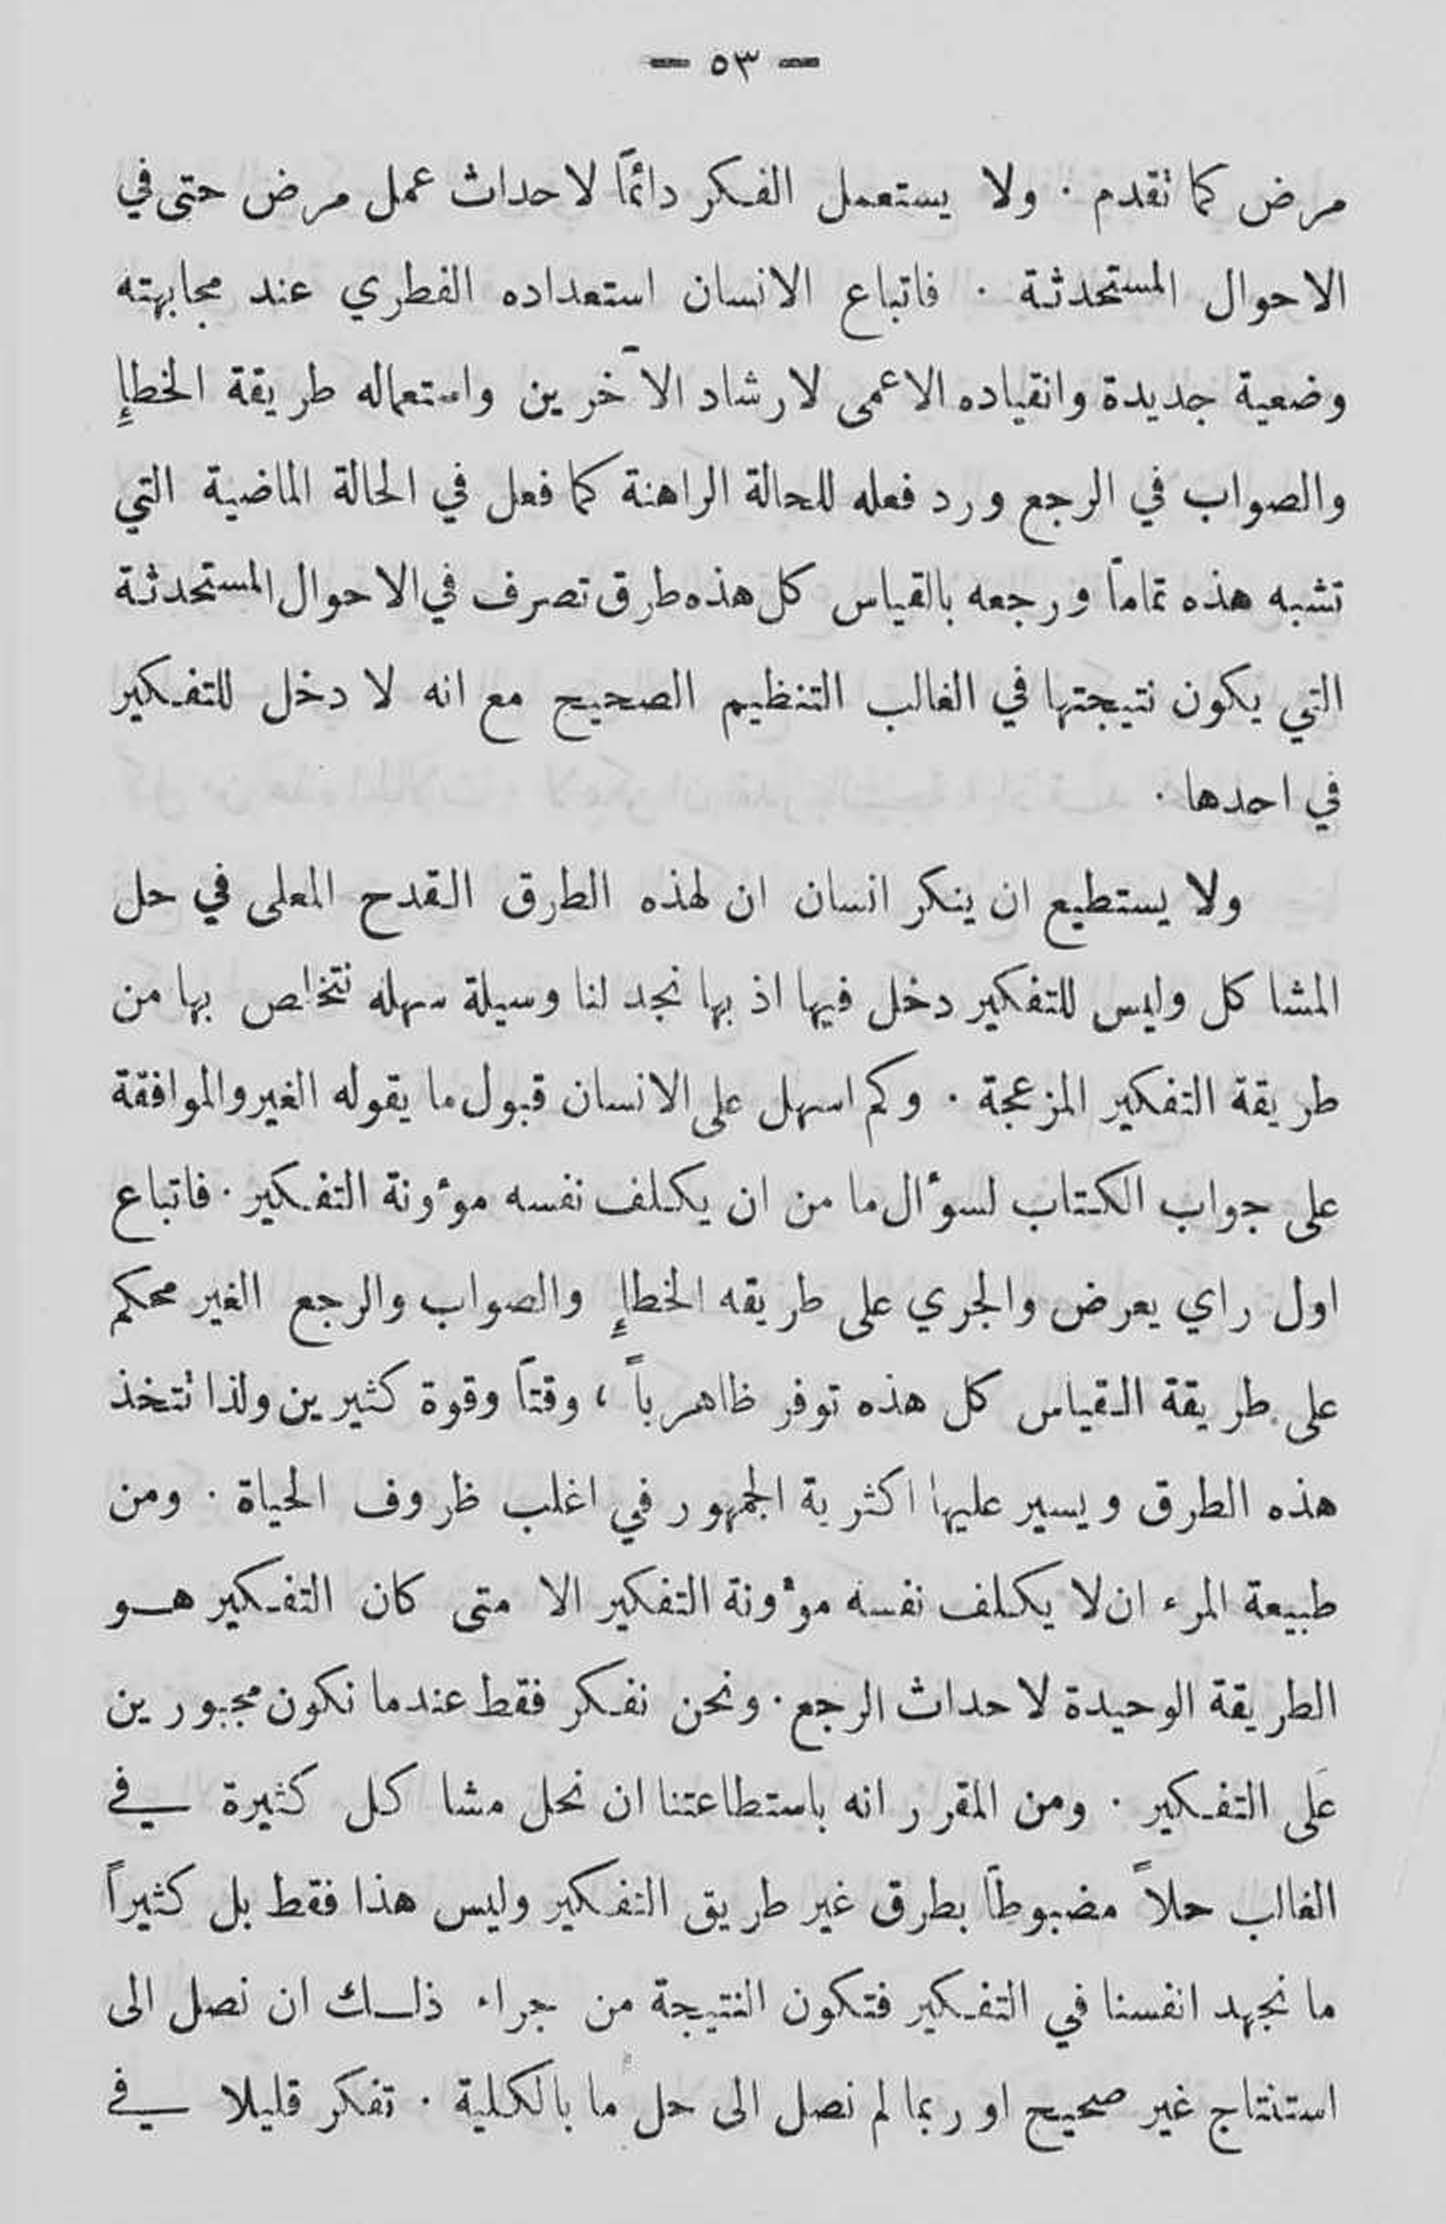 — ٥٣ —
مرض كما تقدم . ولا يستعمل الفكر دائمًا لاحداث عمل مرض حتى في
الاحوال المستحدثة . فاتباع الانسان استعداده الفطري عند مجابهته
وضعية جديدة وانقياده الاعمى لارشاد الآخرين واستعماله طريقة الخطإ
والصواب في الرجع ورد فعله للحالة الراهنة كما فعل في الحالة الماضية التي
تشبه هذه تمامًا ورجعه بالقياس كل هذه طرق تصرف في الاحوال المستحدثة
التي يكون نتيجتها في الغالب التنظيم الصحيح مع انه لا دخل للتفكير
في احدها .
ولا يستطيع ان ينكر انسان ان لهذه الطرق القدح المعلى في حل
المشاكل وليس للتفكير دخل فيها اذ بها نجد لنا وسيلة سهله نتخلص بها من
طريقة التفكير المزعجة . وكم اسهل على الانسان قبول ما يقوله الغير والموافقة
على جواب الكتاب لسؤال ما من ان يكلف نفسه مؤونة التفكير . فاتباع
اول راي يعرض والجري على طريقه الخطإ والصواب والرجع الغير محكم
على طريقة القياس كل هذه توفر ظاهرياً ، وقتًا وقوة كثيرين ولذا تتخذ
هذه الطرق ويسير عليها اكثرية الجمهور في اغلب ظروف الحياة . ومن
طبيعة المرء ان لا يكلف نفسه مؤونة التفكير الا متى كان التفكير هو
الطريقة الوحيدة لاحداث الرجع . ونحن نفكر فقط عندما نكون مجبورين
عَلى التفكير . ومن المقرر انه باستطاعتنا ان نحل مشاكل كثيرة في
الغالب حلاً مضبوطًا بطرق غير طريق التفكير وليس هذا فقط بل كثيراً
ما نجهد انفسنا في التفكير فتكون النتيجة من جراء ذلك ان نصل الى
استنتاج غير صحيح او ربما لم نصل الى حل ما بالكلية . تفكر قليلا في